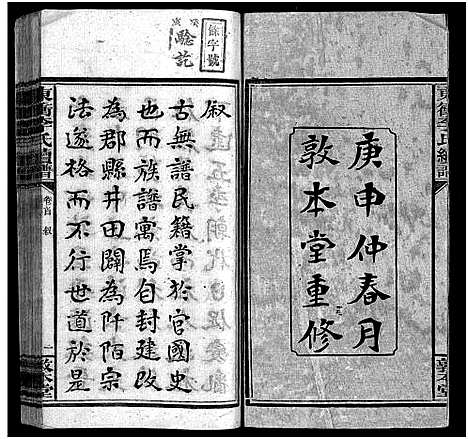 庚申仲春月
敦本堂重修
敦本堂
餘字號
驗訖
敘
古無譜民籍掌於官國史
也而族譜寓焉自封建改
為郡縣井田闢為阡陌宗
法遂格而不行世道於是
卷首 敘
一
敦本堂